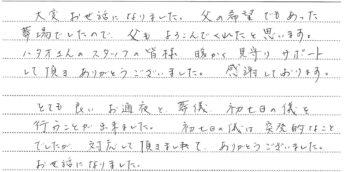 大変お世話になりました。父の希望でもあった
葬場でしたので、父もよろこんでくれたと思います。
ハタオさんのスタッフの皆様 暖かく見守り サポート
して頂き ありがとうございました。 感謝しております。
とても良いお通夜と、葬儀、初七日の儀を
行うことが出来ました。 初七日の儀は突発的なこと
でしたが、対応して頂きまして、ありがとうございました。
お世話になりました。